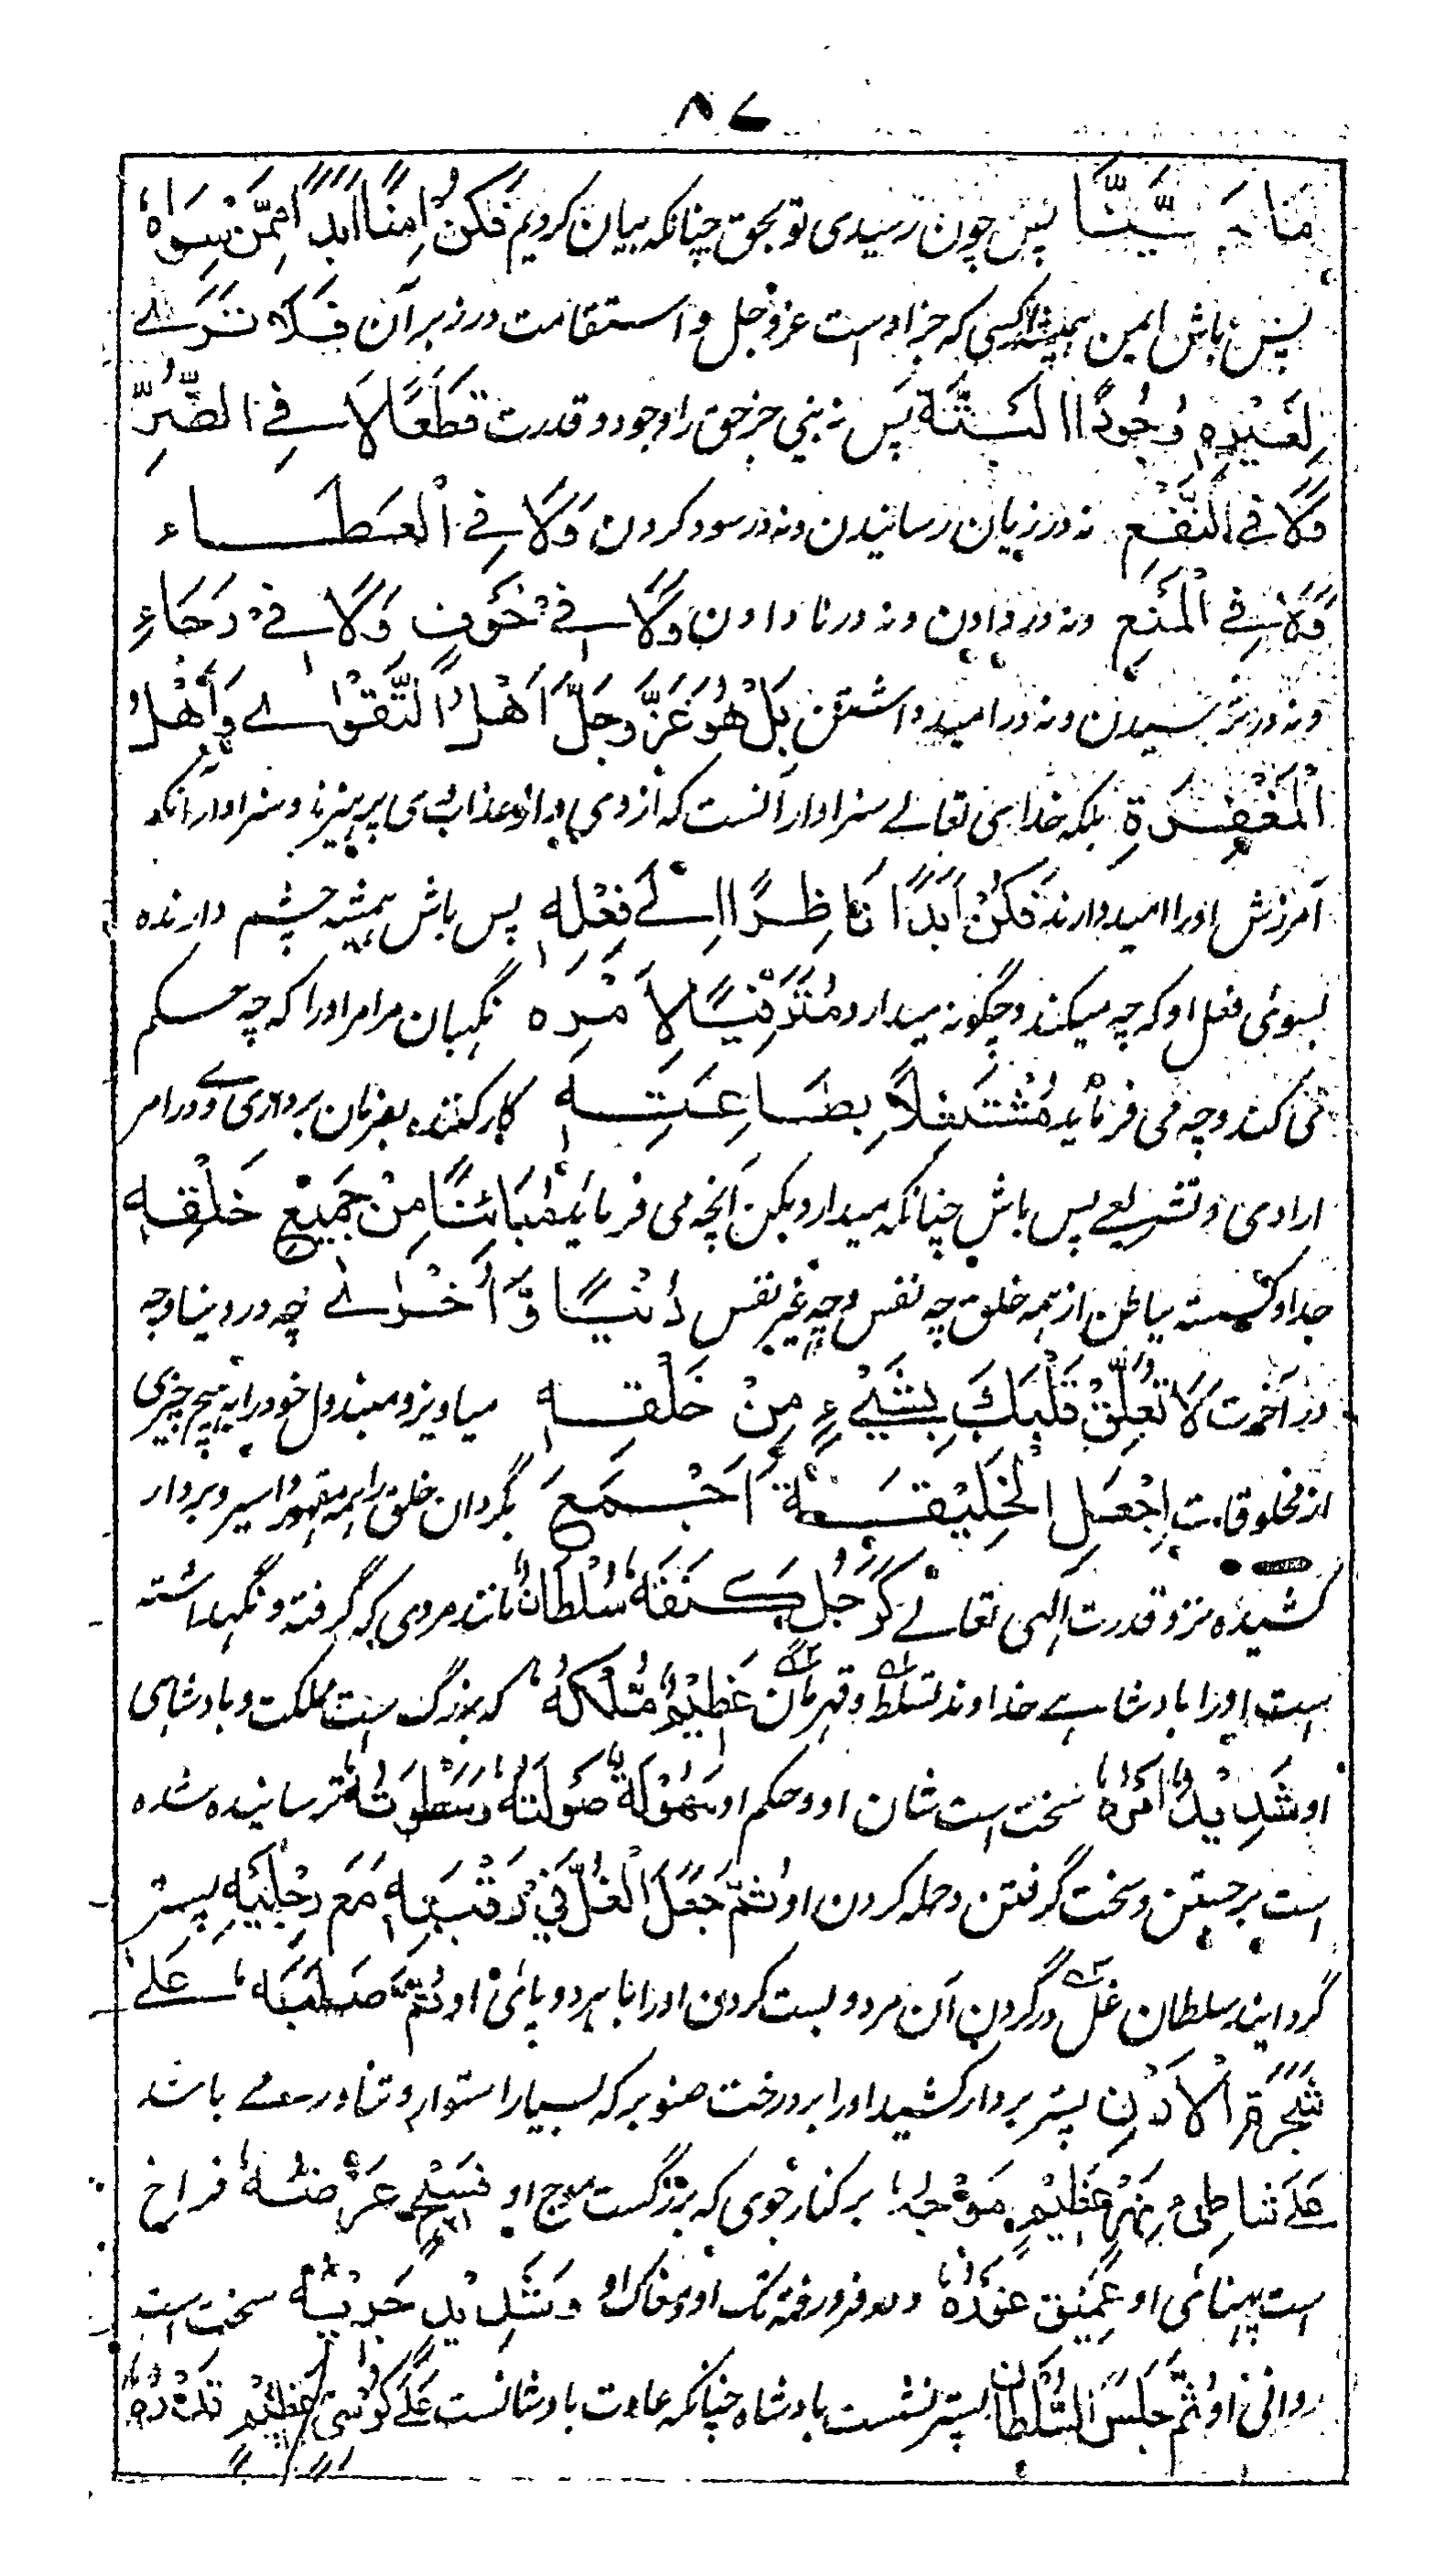 ۸۷
پس چون رسیدی تو بحق چنانکه بیان کردیم فَكُنْ اٰمِنًا اَبَدًا مِمَّنْ سِوَاهُ
پس باش ایمن همیشه از کسی که جز اوست عزوجل و استقامت ورز بر آن فَلَا تَرٰے
لِغَيْرِهٖ وُجُوْدًا اَلْبَتَّةَ پس نه بینی جز حق را وجود و قدرت قَطْعًا لَا فِے الضُّرِّ
وَلَا فِی النَّفْعِ نه در زیان رسانیدن و نه در سود کردن وَلَا فِے الْعَطَاء
وَلَا فِے الْمَنْعِ و نه در دادن و نه در نا دادن وَلَا فِے خَوْفٍ وَلَا فِے رَجَاءٍ
و نه در ترسیدن و نه در امید داشتن بَلْ هُوَ عَزَّ وَجَلَّ اَهْلُ التَّقْوٰے وَاَهْلُ
الْمَغْفِرَةِ بلکه خدای تعالے سزاوار آنست که از وی و از عذاب وی پرهیزند و سزاوار آنکه
آمرزش او را امید دارند فَكُنْ اَبَدًا نَاظِرًا اِلٰے فِعْلِهٖ پس باش همیشه چشم دارنده
بسوئی فعل او که چه میکند و چگونه میدارد مُتَرَقِّبًا لِاَمْرِهٖ نگهبان مر امر او را که چه حکم
می کند و چه می فرماید مُشْتَغِلًا بِطَاعَتِهٖ کار کننده بفرمان برداری وے در امر
ارادی و تشریعے پس باش چنانکه میدارد و بکن آنچه می فرماید مُبَائِنًا مِنْ جَمِيْعِ خَلْقِهٖ
جدا و گسسته بباطن از همه خلق چه نفس و چه غیر نفس دُنْيًا وَّاُخْرٰے چه در دنیا و چه
در آخرت لَا تُعَلِّقْ قَلْبَكَ بِشَیْءٍ مِنْ خَلْقِهٖ میاویز و مبند دل خود را به هیچ چیزی
از مخلوقات اِجْعَلِ الْخَلِيْقَةَ اَجْمَعَ بگردان خلق را همه مقهور اسیر و بردار
کشیده نزد قدرت الهی تعالے كَرَجُلٍ كَنَفَهٗ سُلْطَانٌ مانند مردی که گرفته و نگهداشته
است او را بادشاهے خداوند تسلط و قهرمان عَظِيْمٌ مُلْكُهٗ که بزرگ است مملکت و بادشاهی
او شَدِيْدٌ اَمْرُهٗ سخت است شان او و حکم او مَهُوْلَةٌ صَوْلَتُهٗ وَسَطْوَتُهٗ ترسانیده شده
است برجستن و سخت گرفتن و حمله کردن او ثُمَّ جَعَلَ الْغُلَّ فِیْ رَقَبَتِهٖ مَعَ رِجْلَيْهِ پستر
گردانید سلطان غل در گردن آن مرد و بست کردن او را با هر دو پائی او ثُمَّ صَلَبَهٗ عَلٰے
شَجَرَةِ الْاَرْزِ پستر بردار کشید او را بر درخت صنوبر که بسیار استوار و تناور مے باشد
عَلٰے شَاطِیءِ نَهْرٍ عَظِيْمٍ مَوْجُهٗ بر کنار جوی که بزرگست موج او فَسِيْحٍ عَرْضُهٗ فراخ
است پهنائی او عَمِيْقٍ غَوْرُهٗ و دور فرو رفته تک او و مغاک او وَشَدِيْدٍ جَرْيُهٗ سخت است
روانی او ثُمَّ جَلَسَ السُّلْطَانُ پستر نشست بادشاه چنانکه عادت بادشاهانست عَلٰے كُرْسِیٍّ عَظِيْمٍ قَدْرُهٗ